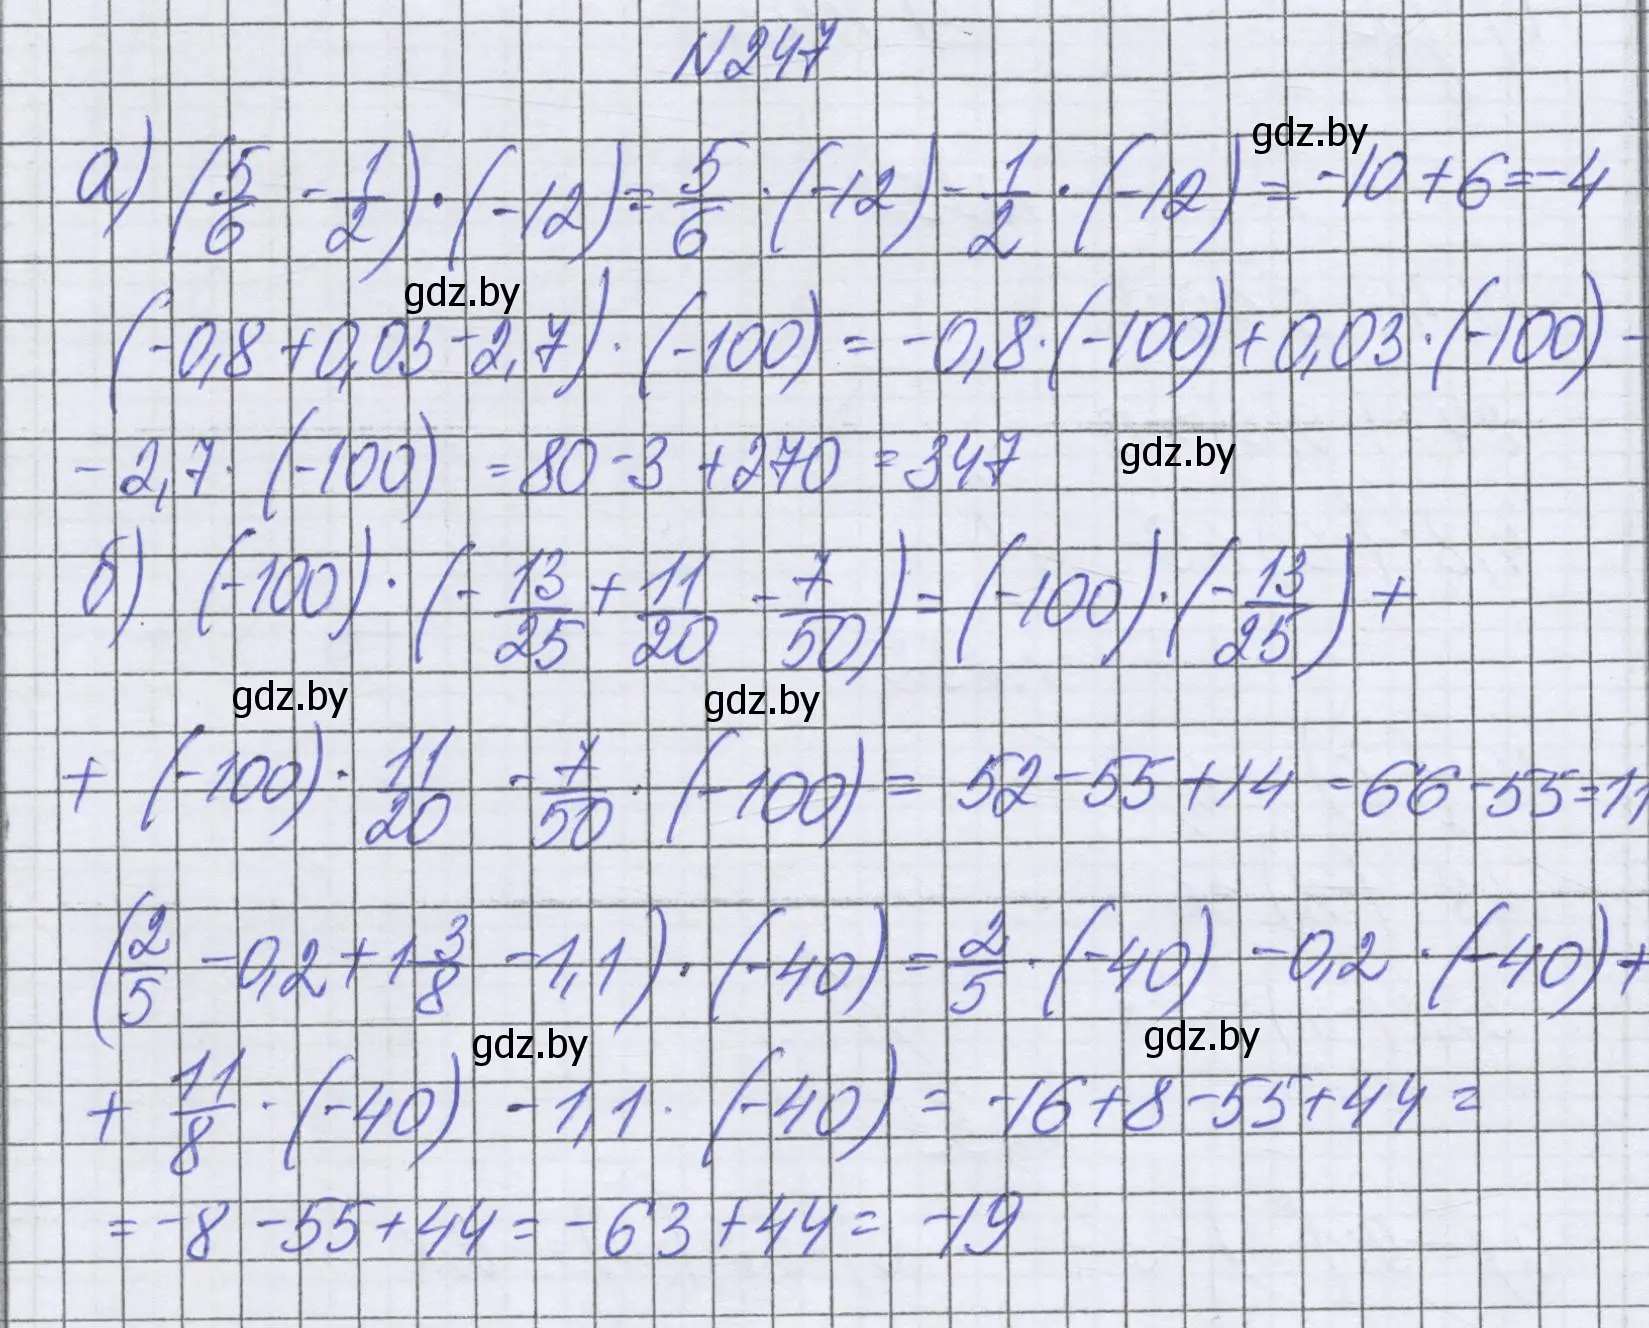 N247
gdz.by
а) (5/6 - 1/2) · (-12) = 5/6 · (-12) - 1/2 · (-12) = -10 + 6 = -4
gdz.by
(-0,8 + 0,03 - 2,7) · (-100) = -0,8 · (-100) + 0,03 · (-100) -
- 2,7 · (-100) = 80 - 3 + 270 = 347
gdz.by
б) (-100) · (-13/25 + 11/20 - 7/50) = (-100) · (-13/25) +
gdz.by gdz.by
+ (-100) · 11/20 - 7/50 · (-100) = 52 - 55 + 14 = 66 - 55 = 11
(2/5 - 0,2 + 1 3/8 - 1,1) · (-40) = 2/5 · (-40) - 0,2 · (-40) +
gdz.by gdz.by
+ 11/8 · (-40) - 1,1 · (-40) = -16 + 8 - 55 + 44 =
= -8 - 55 + 44 = -63 + 44 = -19